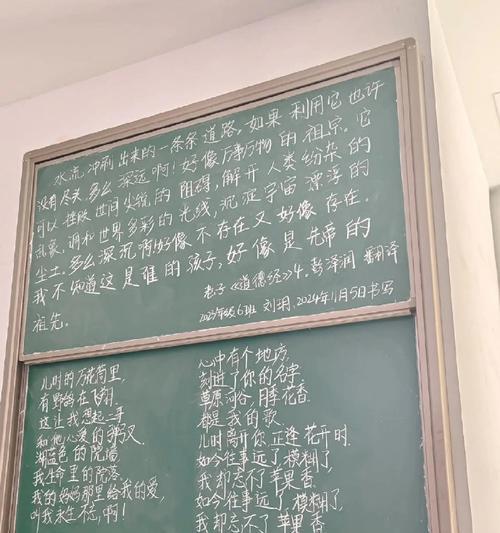 水流冲刷出来的一条条道路，如果利用它也许
没有尽头。多么深远啊！好像万事万物的祖宗。它
可以挫败世间尖锐的阻碍，解开人类纷杂的
乱象，调和世界多彩的光线，沉淀宇宙漂浮的
尘土。多么深沉啊！好像不存在又好像存在。
我不知道这是谁的孩子，好像是先帝的
祖先。
老子《道德经》4. 彭泽润 翻译
2023年级6班 刘玥，2024年1月5日书写
儿时的万花筒里，
有野鸽在飞翔，
这让我想起二哥
和他心爱的弹弓叉
湖蓝色的院墙
我生命里的院落
我的妈妈那里给我的爱，
叫我永生不忘，啊！
心中有个地方，
刻进了你的名字
草原河谷，月季花香
都是我的歌
儿时离开你正逢花开时，
如今往事远了模糊了，
我却忘不了苹果香
如今往事远了模糊了，
我却忘不了苹果香